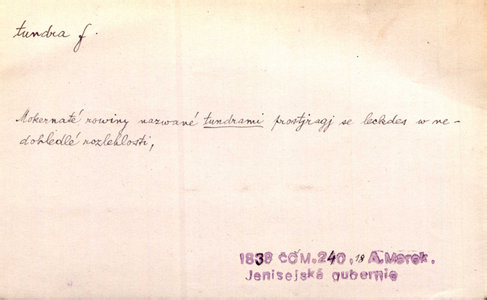 tundra f.
Mokernaté rowiny nazwané tundrami prostjragj se leckdes w ne-
dohledlé rozlehlosti,
1838 ČČM.240, 19 A.Marek.
Jenisejská gubernie